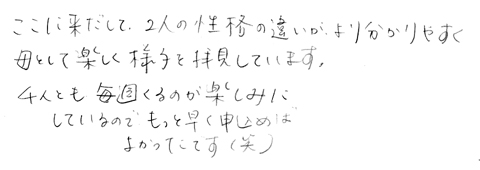 ここに来だして、2人の性格の違いが、より分かりやすく
母として楽しく様子を拝見しています。
4人とも毎週くるのが楽しみに
しているのでもっと早く申込めば
よかったてす(笑)